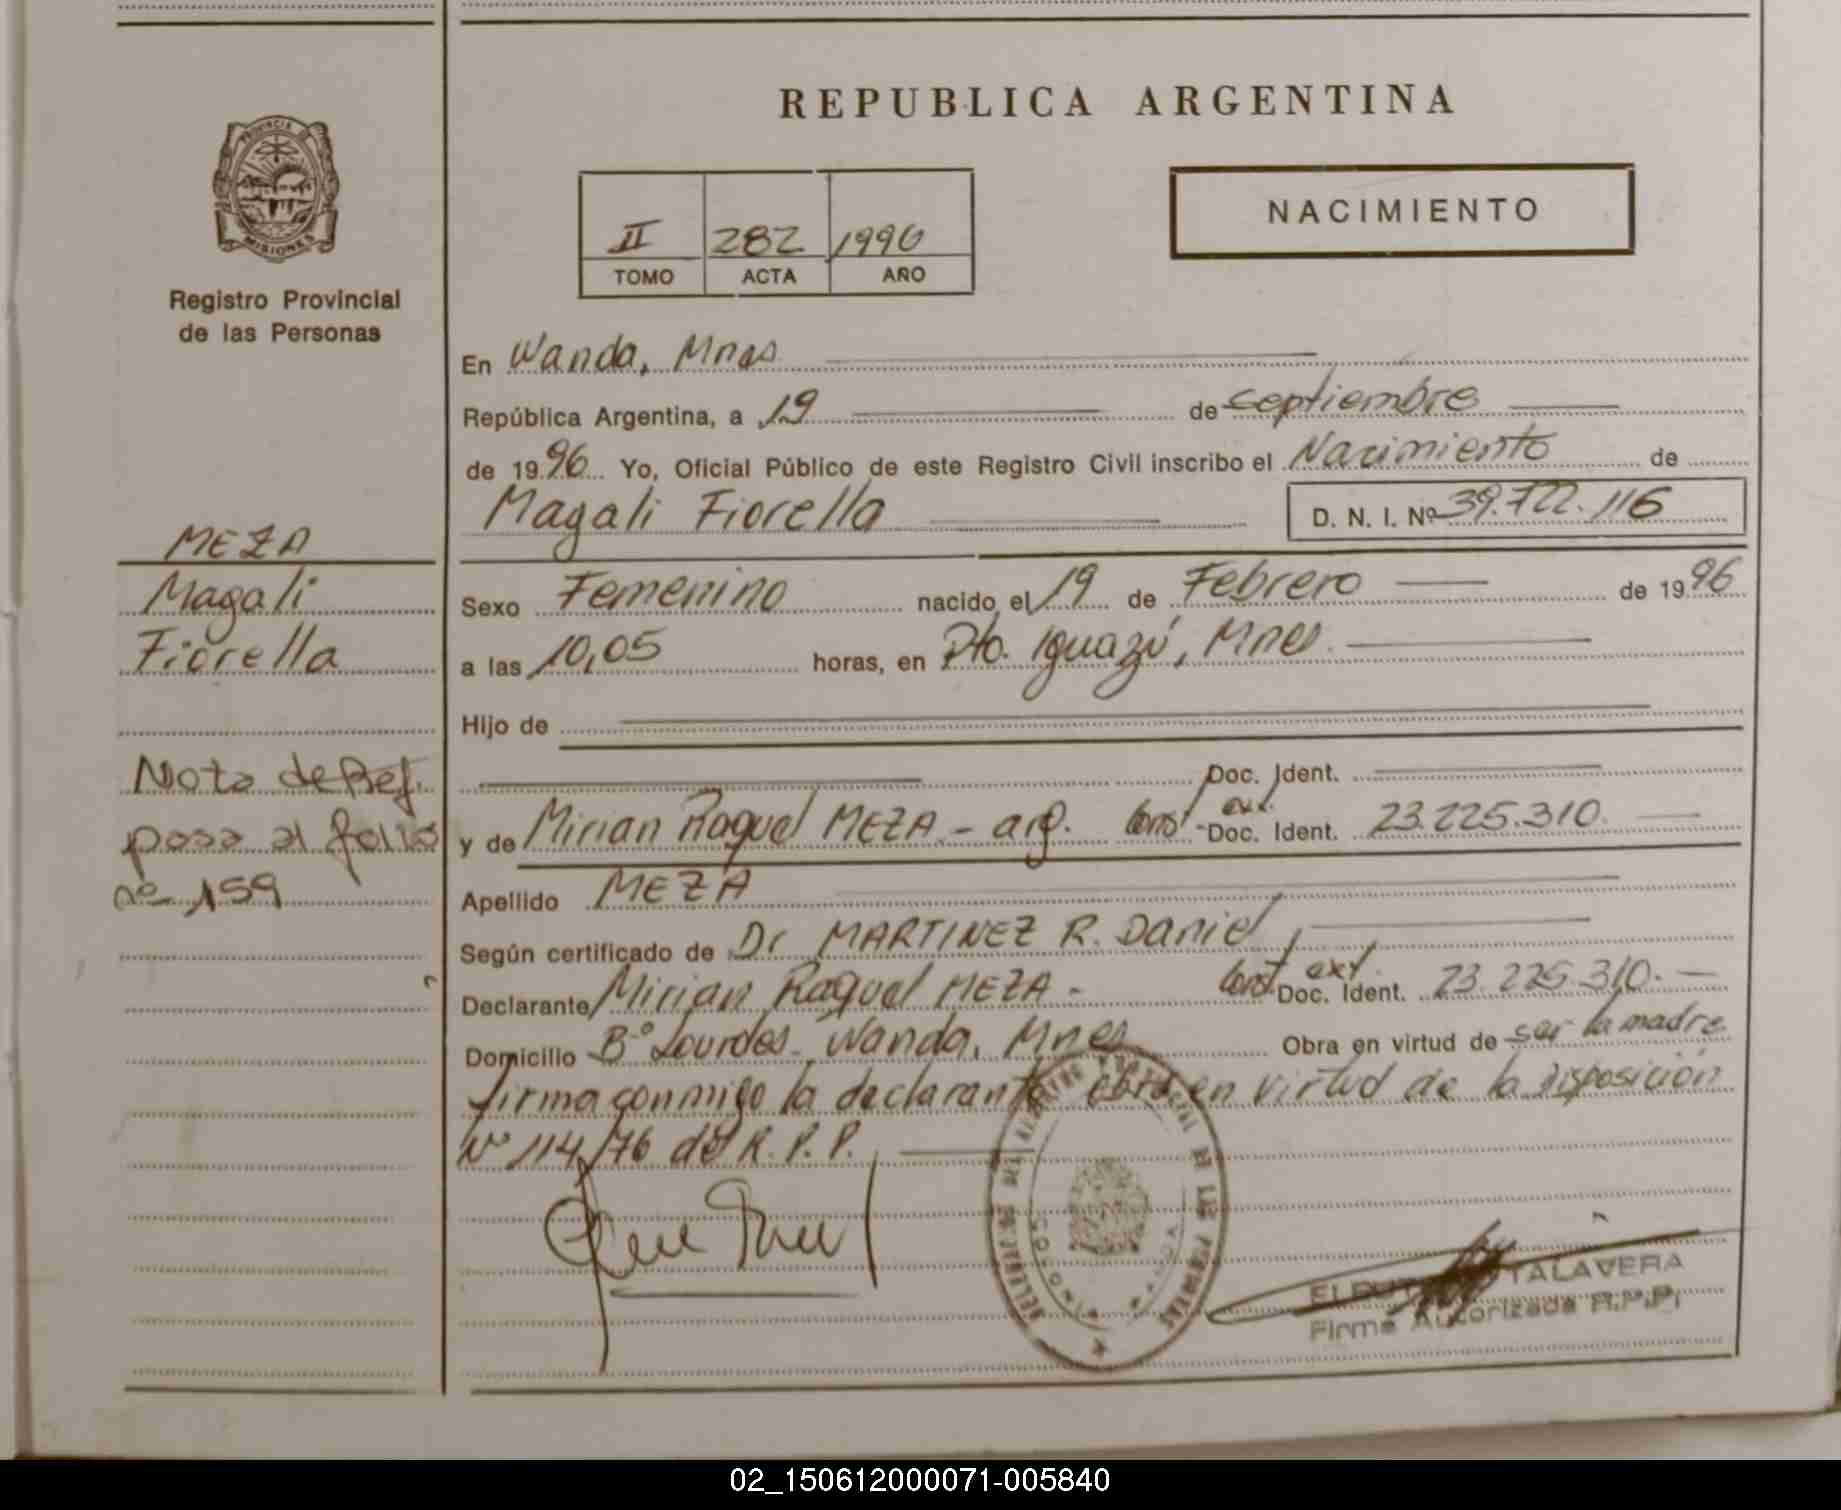 REPUBLICA ARGENTINA
PROVINCIA
MISIONES
Registro Provincial
de las Personas
II 282 1996
TOMO ACTA AÑO
NACIMIENTO
En Wanda, Mnes
República Argentina, a 19 de septiembre
de 1996 Yo, Oficial Público de este Registro Civil inscribo el Nacimiento de
Magali Fiorella D. N. I. Nº 39.722.116
MEZA
Magali
Fiorella
Sexo Femenino nacido el 19 de Febrero de 1996
a las 10,05 horas, en Pto. Iguazú, Mnes.
Hijo de
Doc. Ident.
Nota de Ref.
pasa al folio
nº 159
y de Mirian Raquel MEZA - arg. Const. ext. Doc. Ident. 23.225.310.
Apellido MEZA
Según certificado de Dr MARTINEZ R. Daniel
Declarante Mirian Raquel MEZA - Const. ext. Doc. Ident. 23.225.310.
Domicilio Bº Lourdes - Wanda, Mnes Obra en virtud de ser la madre
firma conmigo la declarante obra en virtud de la Disposición
Nº 114/76 del R. P. P.
TALAVERA
Firma Autorizada R.P.P.
02_150612000071-005840